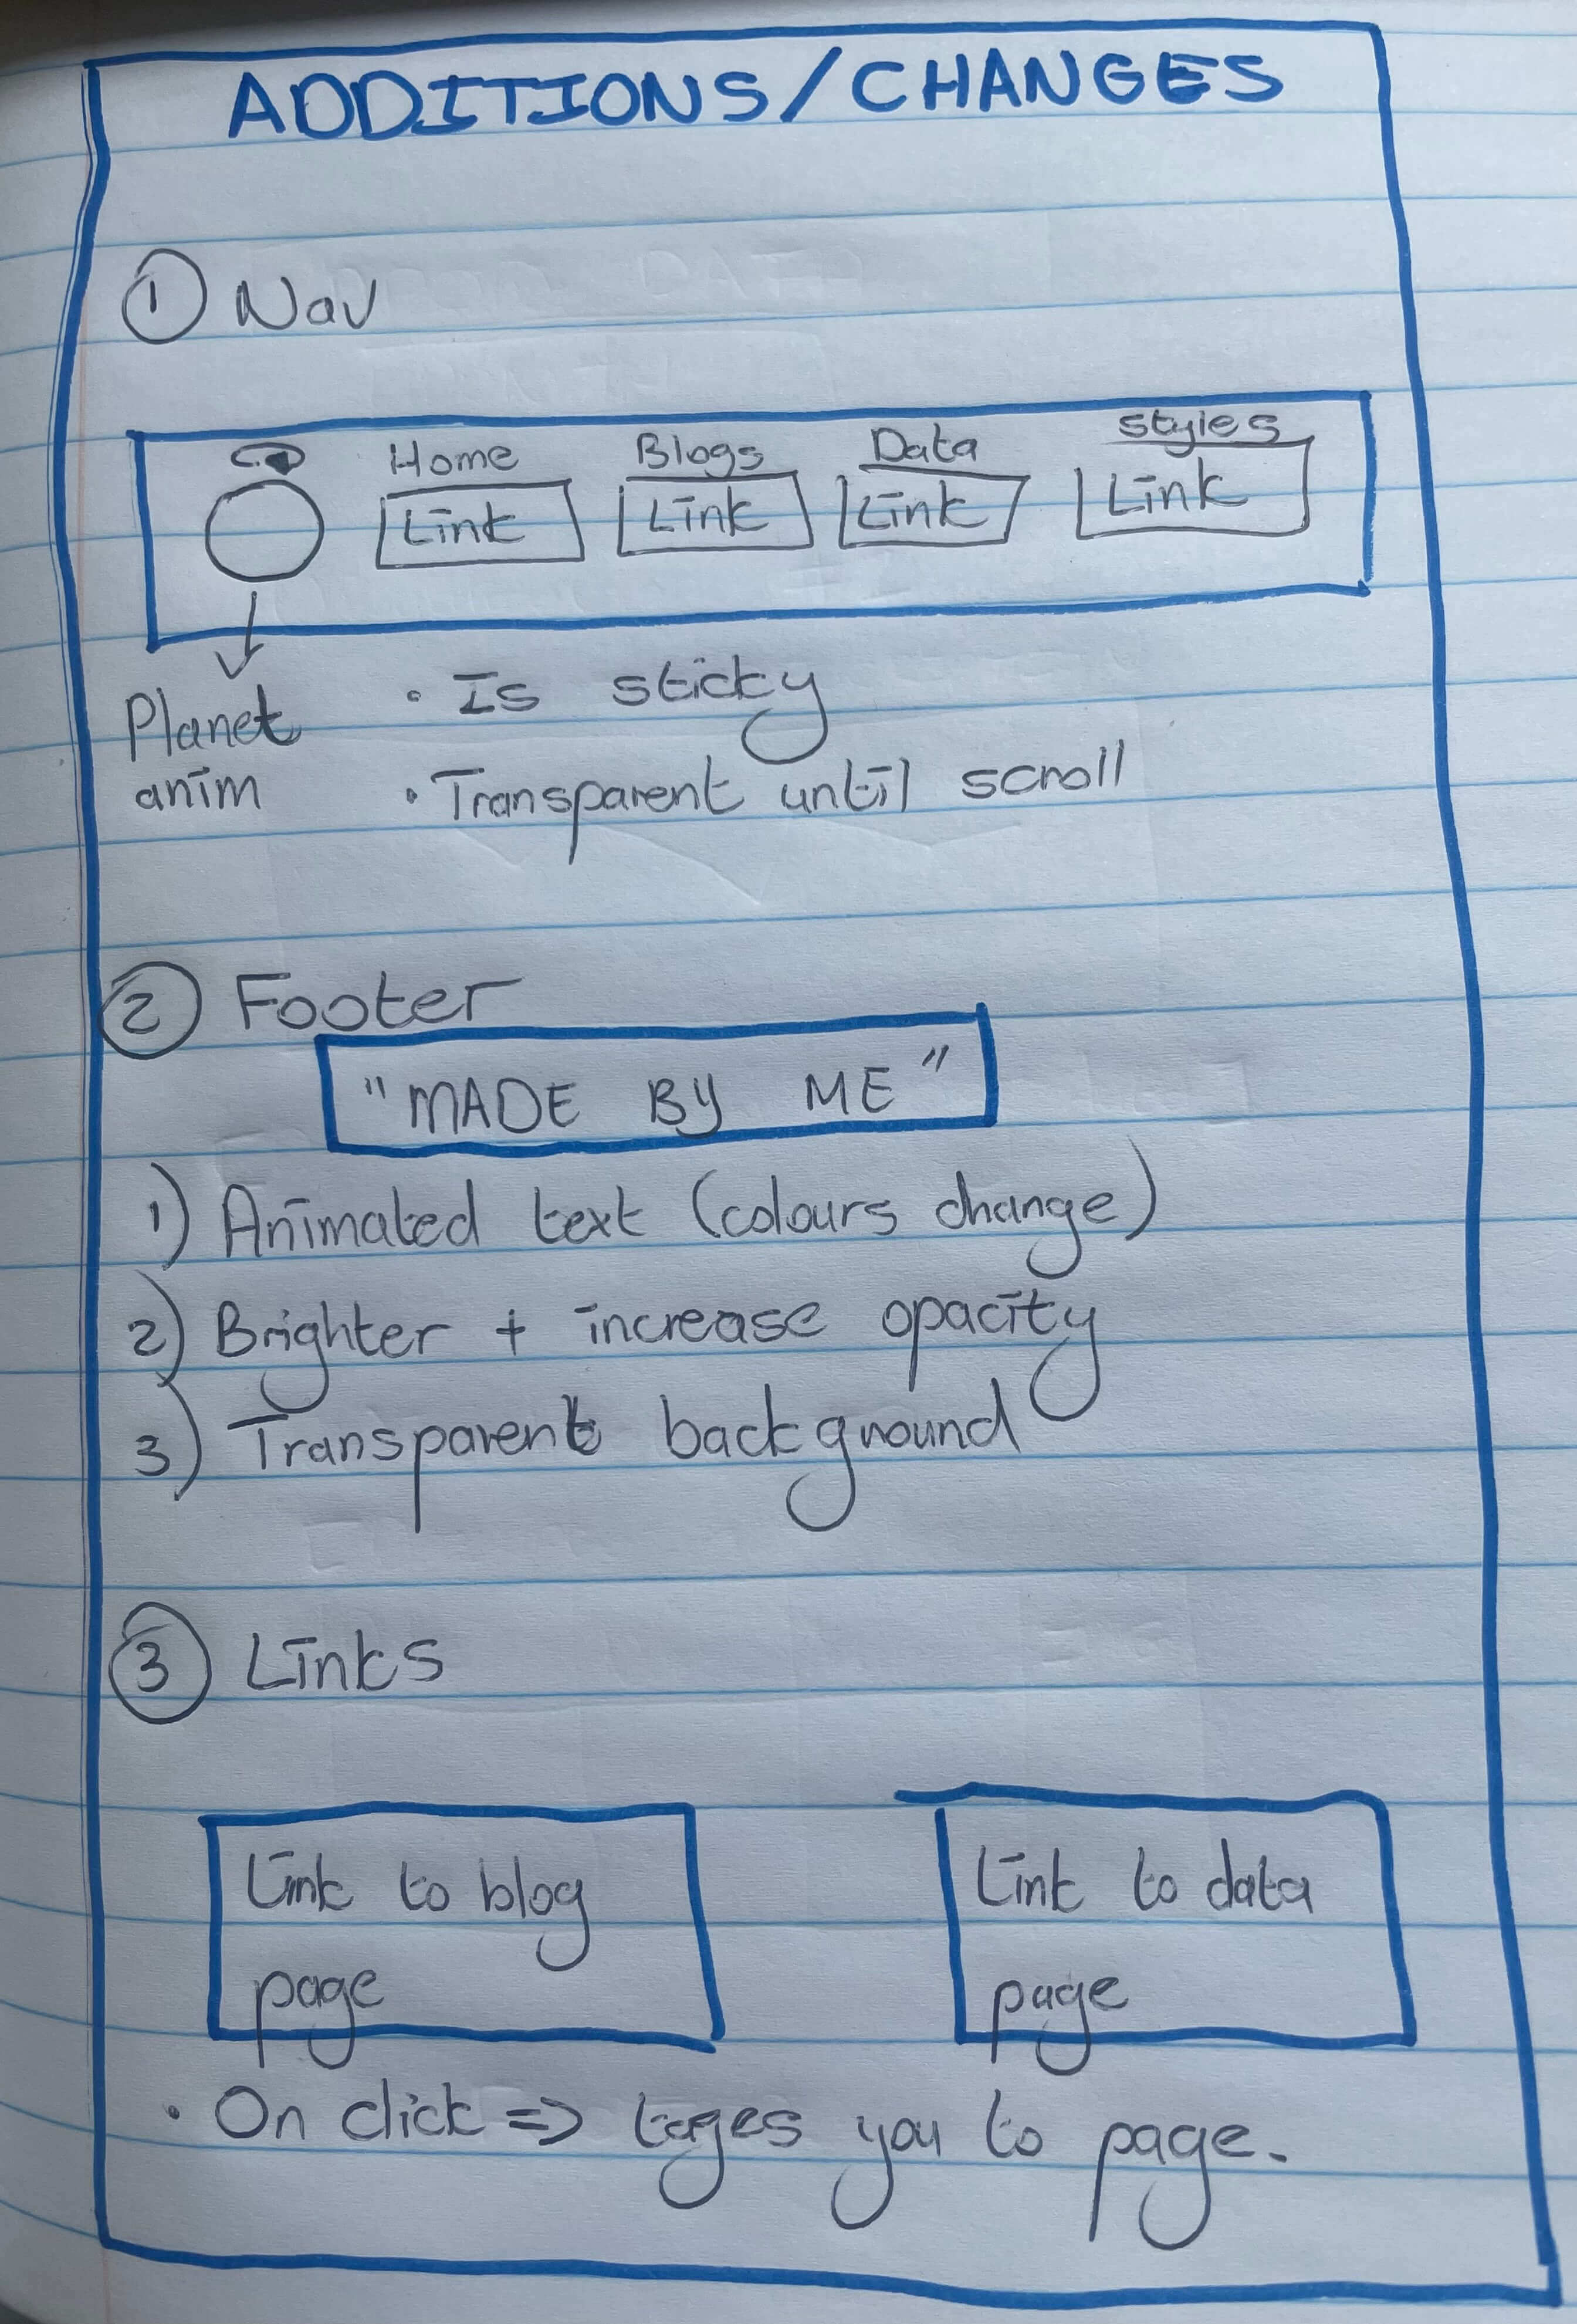 ADDITIONS/CHANGES
① Nav
Home Blogs Data Styles
Link Link Link Link
Planet
anim
• Is sticky
• Transparent until scroll
② Footer
"MADE BY ME"
1) Animated text (colours change)
2) Brighter + increase opacity
3) Transparent background
③ Links
Link to blog
page
Link to data
page
• On click => tages you to page.